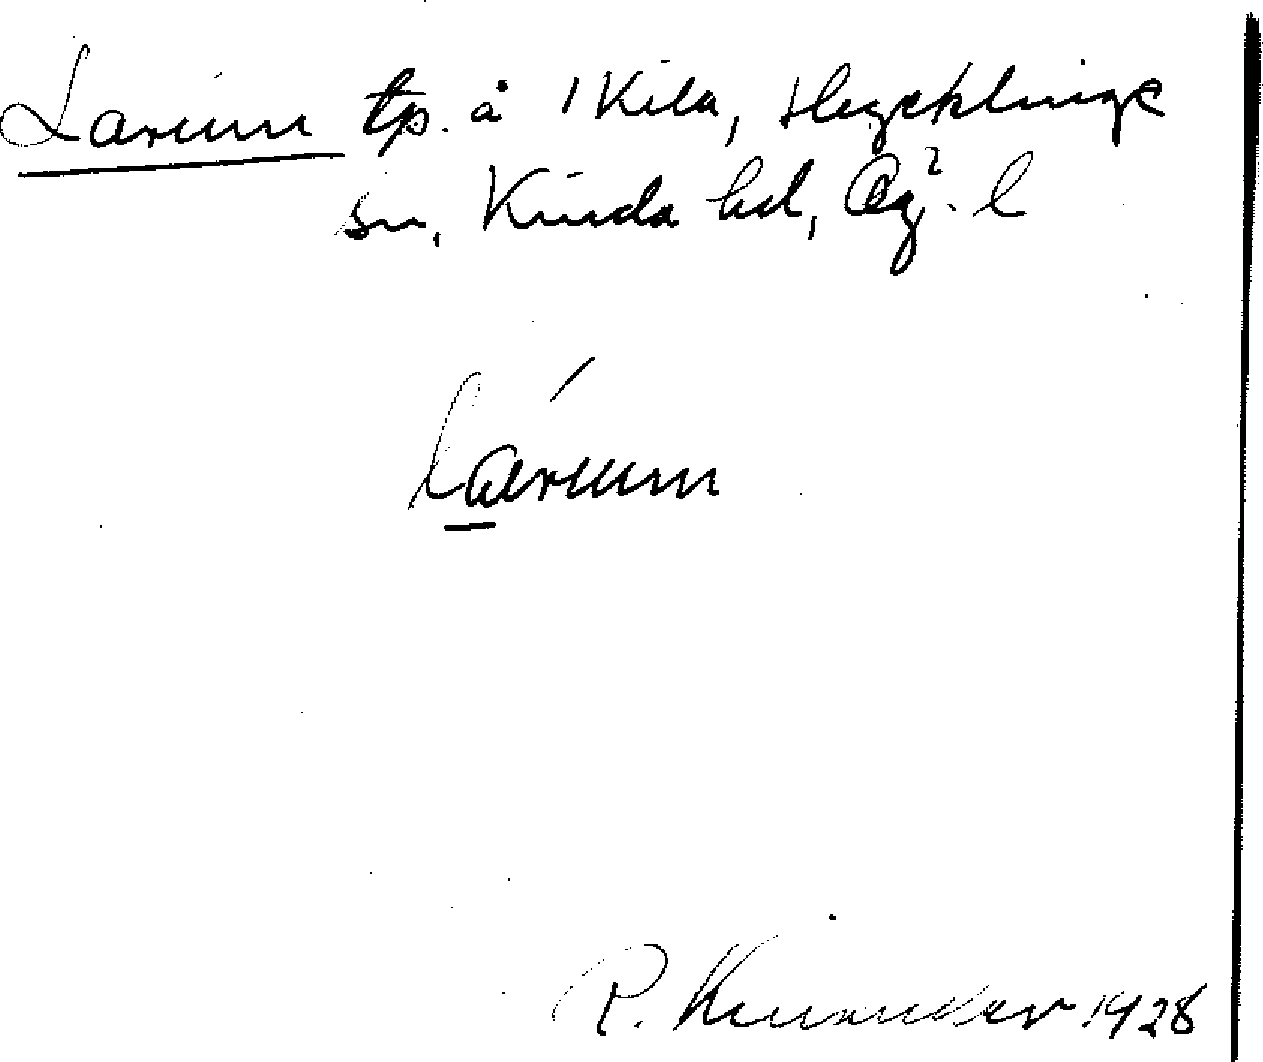 Larum tp. å 1 Kila, Hycklinge
sn, Kinda hd, Ög. l
lárum
R. 1928